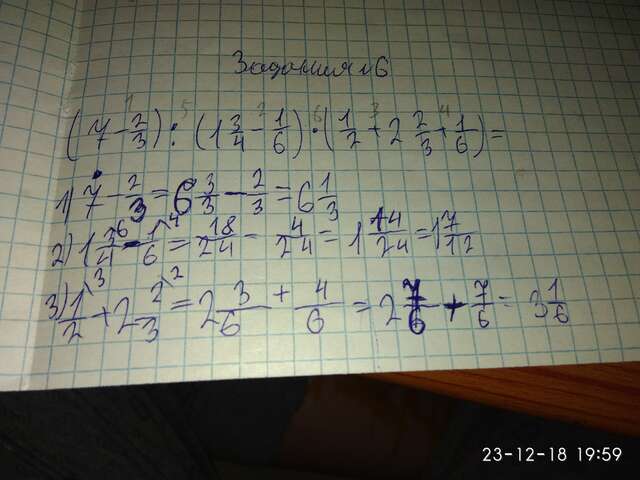 Задания №6
(7 - 2/3) : (1 3/4 - 1/6) · (1/2 + 2 2/3 + 1/6) =
1) 7 - 2/3 = 6 3/3 - 2/3 = 6 1/3
2) 1 3/4 \6 - 1/6 \4 = 18/24 - 4/24 = 1 14/24 = 1 7/12
3) 1/2 \3 + 2 2/3 \2 = 2 3/6 + 4/6 = 2 7/6 + 7/6 = 3 1/6
23-12-18 19:59